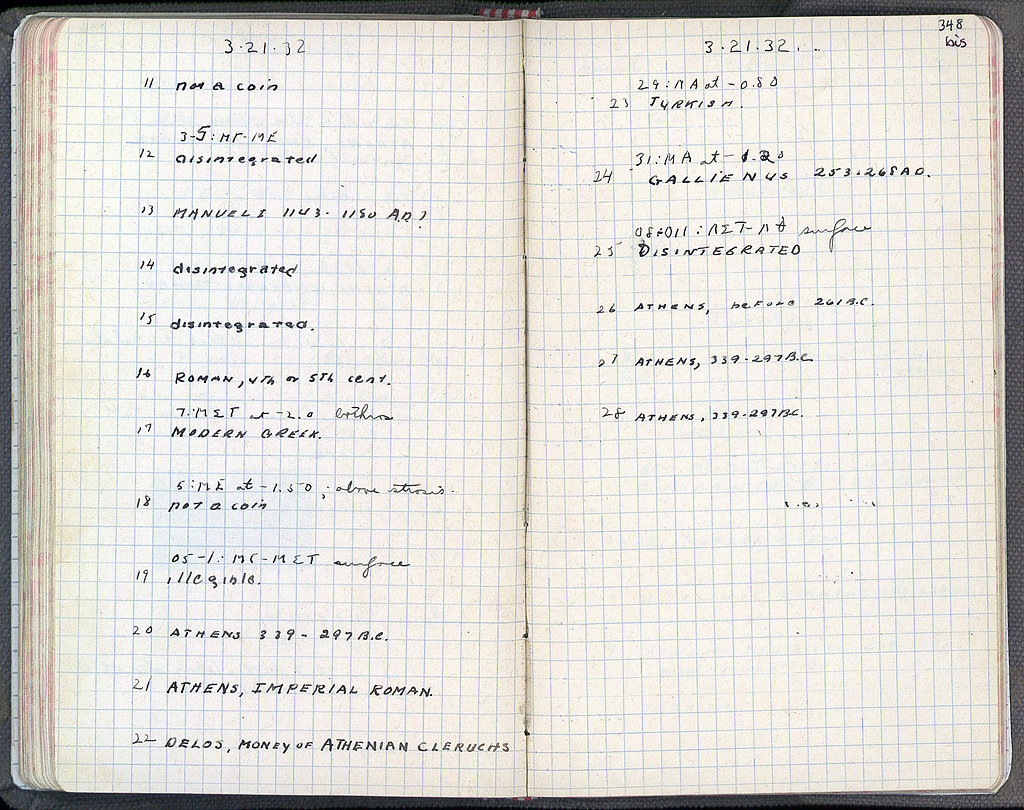 3·21·32
11. not a coin
3-5: ΜΓ-ΜΕ
12 disintegrated
13 MANUEL I 1143-1180 A.D.?
14 disintegrated
15 disintegrated.
16 ROMAN, 4th or 5th cent.
7: ΜΣΤ at -2.0 bothros
17 MODERN GREEK.
5: ΜΕ at -1.50; above strosis.
18 not a coin
05-1: ΜΓ-ΜΣΤ surface
19 illegible.
20 ATHENS 339-297 B.C.
21 ATHENS, IMPERIAL ROMAN.
22 DELOS, MONEY OF ATHENIAN CLERUCHS
348
bis
3·21·32.
29: ΜΑ at -0.80
23 TURKISH.
31: ΜΑ at
24 GALLIENUS 253-268 A.D.
surface
25 DISINTEGRATED
26 ATHENS, before 261 B.C.
27 ATHENS, 339-297 B.C.
28 ATHENS, 339-297 B.C.